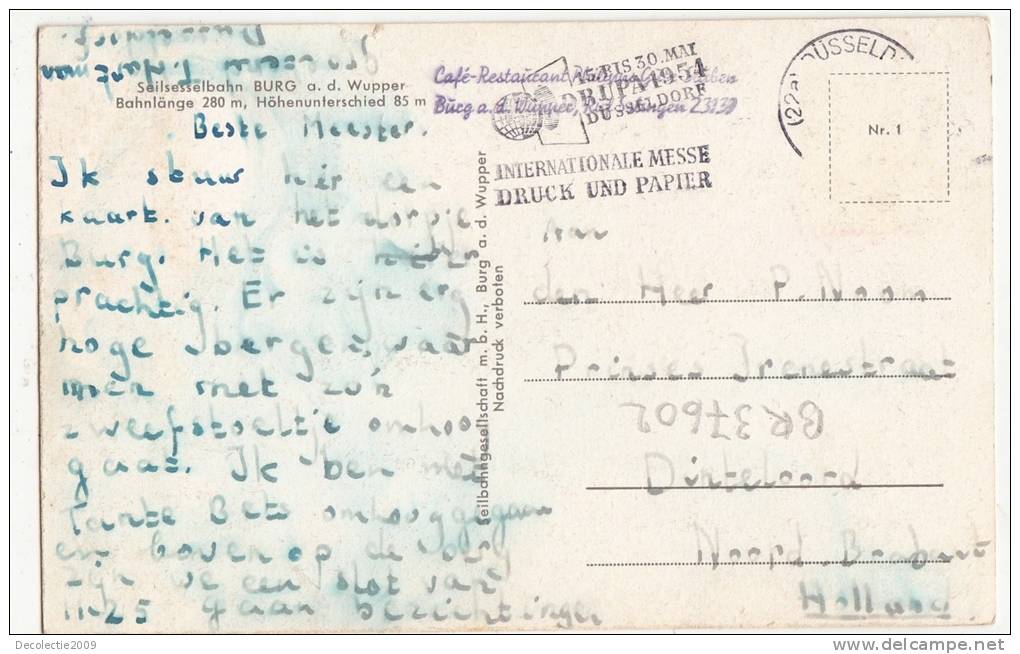 Seilsesselbahn BURG a. d. Wupper
Bahnlänge 280 m, Höhenunterschied 85 m
Beste Meester.
Ik stuur hier een
kaart van het dorpje
Burg. Het is hier
prachtig. Er zijn erg
hoge bergen, waar
men met zo'n
zweefstoeltje omhoog
gaat. Ik ben met
Tante Bets omhooggegaan
en boven op de berg
zijn we een slot van
1125 gaan bezichtingen
groeten
Düsseldorf
Café-Restaurant
Burg a. d. Wupper, Ruf Solingen 23139
15. BIS 30. MAI
DRUPA 1954
DÜSSELDORF
INTERNATIONALE MESSE
DRUCK UND PAPIER
(22a) DÜSSELD
Nr. 1
Seilbahngesellschaft m. b. H., Burg a. d. Wupper
Nachdruck verboten
Aan
den Heer P. Noom
Prinses Irenestraat
BR 37602
Dinteloord
Noord. Brabant
Holland
Decolectie2009
www.delcampe.net